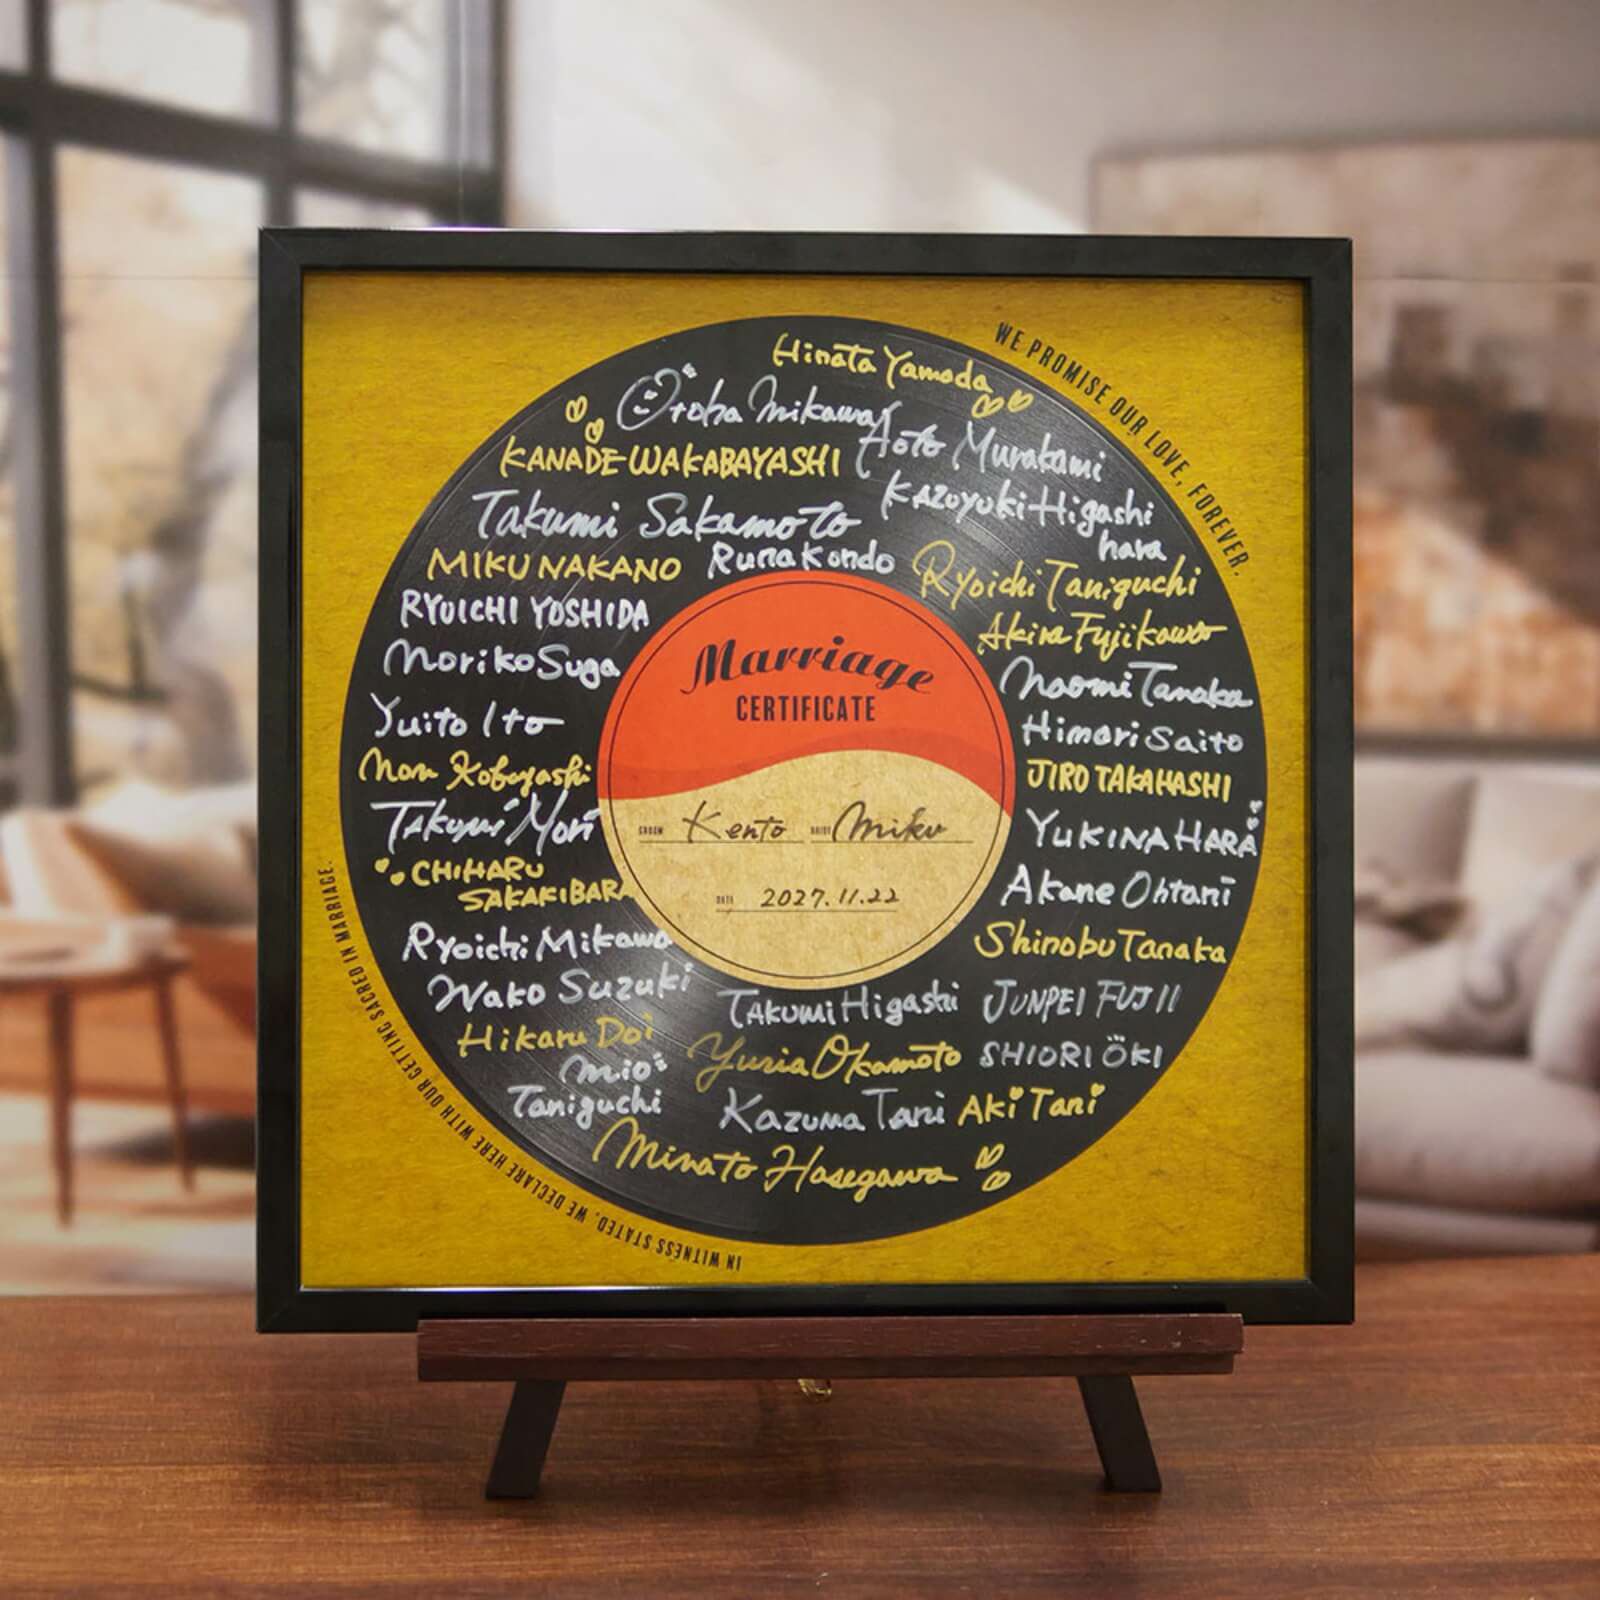 WE PROMISE OUR LOVE, FOREVER.
Hinata Yamada
Otoha Mikawa
KANADE WAKABAYASHI
Aoto Murakami
Takumi Sakamoto
KAZUYUKI Higashi
hara
MIKU NAKANO
Runa Kondo
Ryoichi Taniguchi
RYUICHI YOSHIDA
Akira Fujikawa
Noriko Suga
Naomi Tanaka
Yuito Ito
Himari Saito
Non Kobayashi
JIRO TAKAHASHI
Takumi Mori
YUKINA HARA
CHIHARU
SAKAKIBARA
Akane Ohtani
Ryoichi Mikawa
Shinobu Tanaka
Wako Suzuki
TAKUMI Higashi
JUNPEI FUJII
Hikaru Doi
Yuria Okamoto
SHIORI ÖKI
Mio
Taniguchi
KAZUMA Tani
AKI TANI
Minato Hasegawa
Marriage
CERTIFICATE
GROOM Kento BRIDE Miku
DATE 2027.11.22
IN WITNESS STATED, WE DECLARE HERE WITH OUR GETTING SACRED IN MARRIAGE.